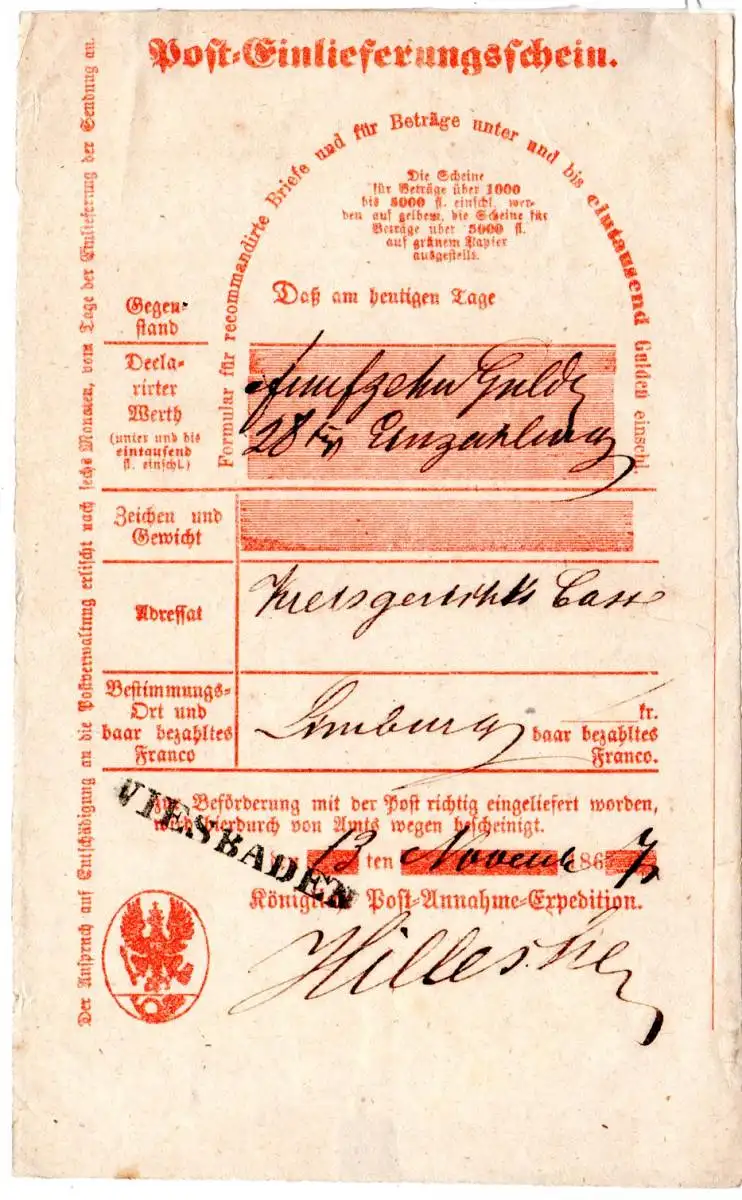 Post-Einlieferungsschein.
Formular für recommandirte Briefe und für Beträge unter und bis eintausend Gulden einschl.
Die Scheine
für Beträge über 1000
bis 5000 fl. einschl. wer-
den auf gelbem, die Scheine für
Beträge über 5000 fl.
auf grünem Papier
ausgestellt.
Gegen-
stand
Daß am heutigen Tage
Decla-
rirter
Werth
(unter und bis
eintausend
fl. einschl.)
fünfzehn Guld
28 Einzahlung
Zeichen und
Gewicht
Adressat
Kreisgerichts Casse
Bestimmungs-
Ort und
baar bezahltes
Franco
Limburg
fr.
baar bezahltes
Franco.
zur Beförderung mit der Post richtig eingeliefert worden,
wird hierdurch von Amts wegen bescheinigt.
WIESBADEN
den 13 ten Novemb 1867
Königliche Post-Annahme-Expedition.
Der Anspruch auf Entschädigung an die Postverwaltung erlischt nach sechs Monaten, vom Tage der Einlieferung der Sendung an.